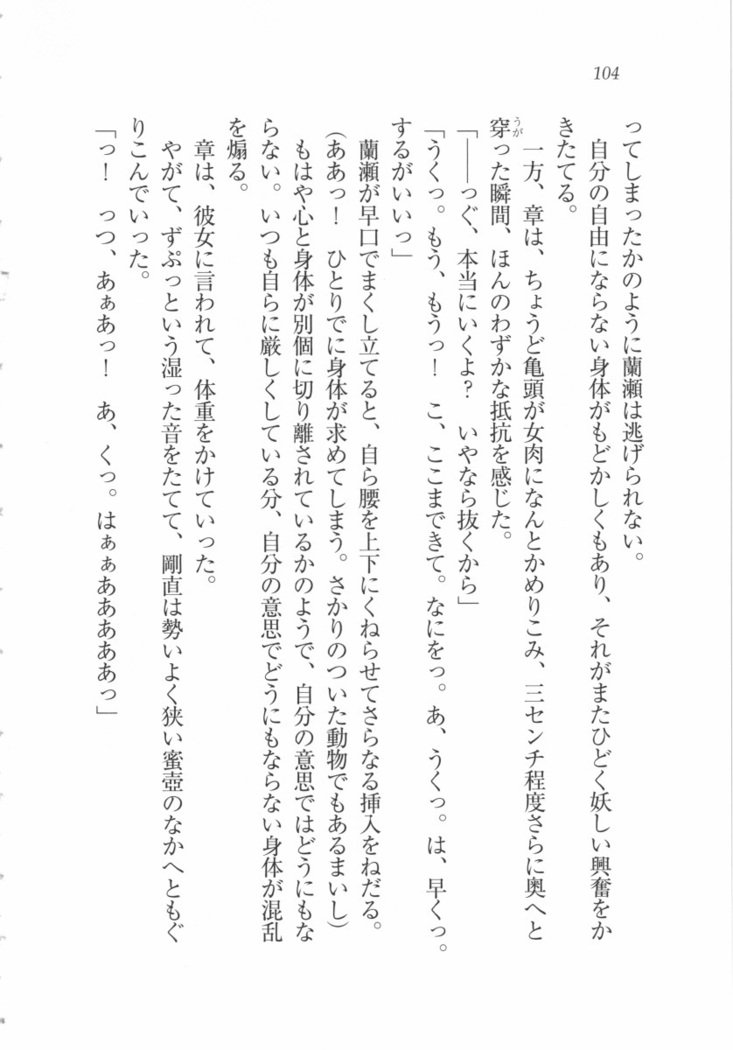 104
ってしまったかのように蘭瀬は逃げられない。
自分の自由にならない身体がもどかしくもあり、それがまたひどく妖しい興奮をか
きたてる。
一方、章は、ちょうど亀頭が女肉になんとかめりこみ、三センチ程度さらに奥へと
穿った瞬間、ほんのわずかな抵抗を感じた。
うが
「――っぐ、本当にいくよ？　いやなら抜くから」
「うくっ。もう、もうっ！　こ、ここまできて。なにをっ。あ、うくっ。は、早くっ。
するがいいっ」
蘭瀬が早口でまくし立てると、自ら腰を上下にくねらせてさらなる挿入をねだる。
(ああっ！　ひとりでに身体が求めてしまう。さかりのついた動物でもあるまいし)
もはや心と身体が別個に切り離されているかのようで、自分の意思ではどうにもな
らない。いつも自らに厳しくしている分、自分の意思でどうにもならない身体が混乱
を煽る。
章は、彼女に言われて、体重をかけていった。
やがて、ずぷっという湿った音をたてて、剛直は勢いよく狭い蜜壺のなかへともぐ
りこんでいった。
「っ！　っつ、あぁあっ！　あ、くっ。はぁぁああああっ」